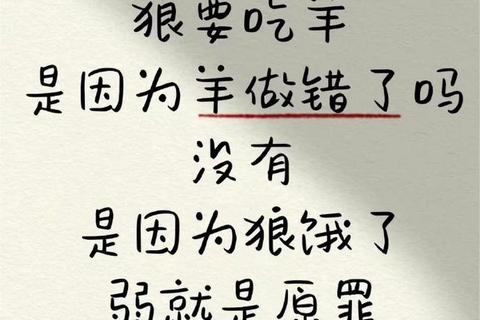 狼要吃羊
是因为羊做错了吗
没有
是因为狼饿了
弱就是原罪